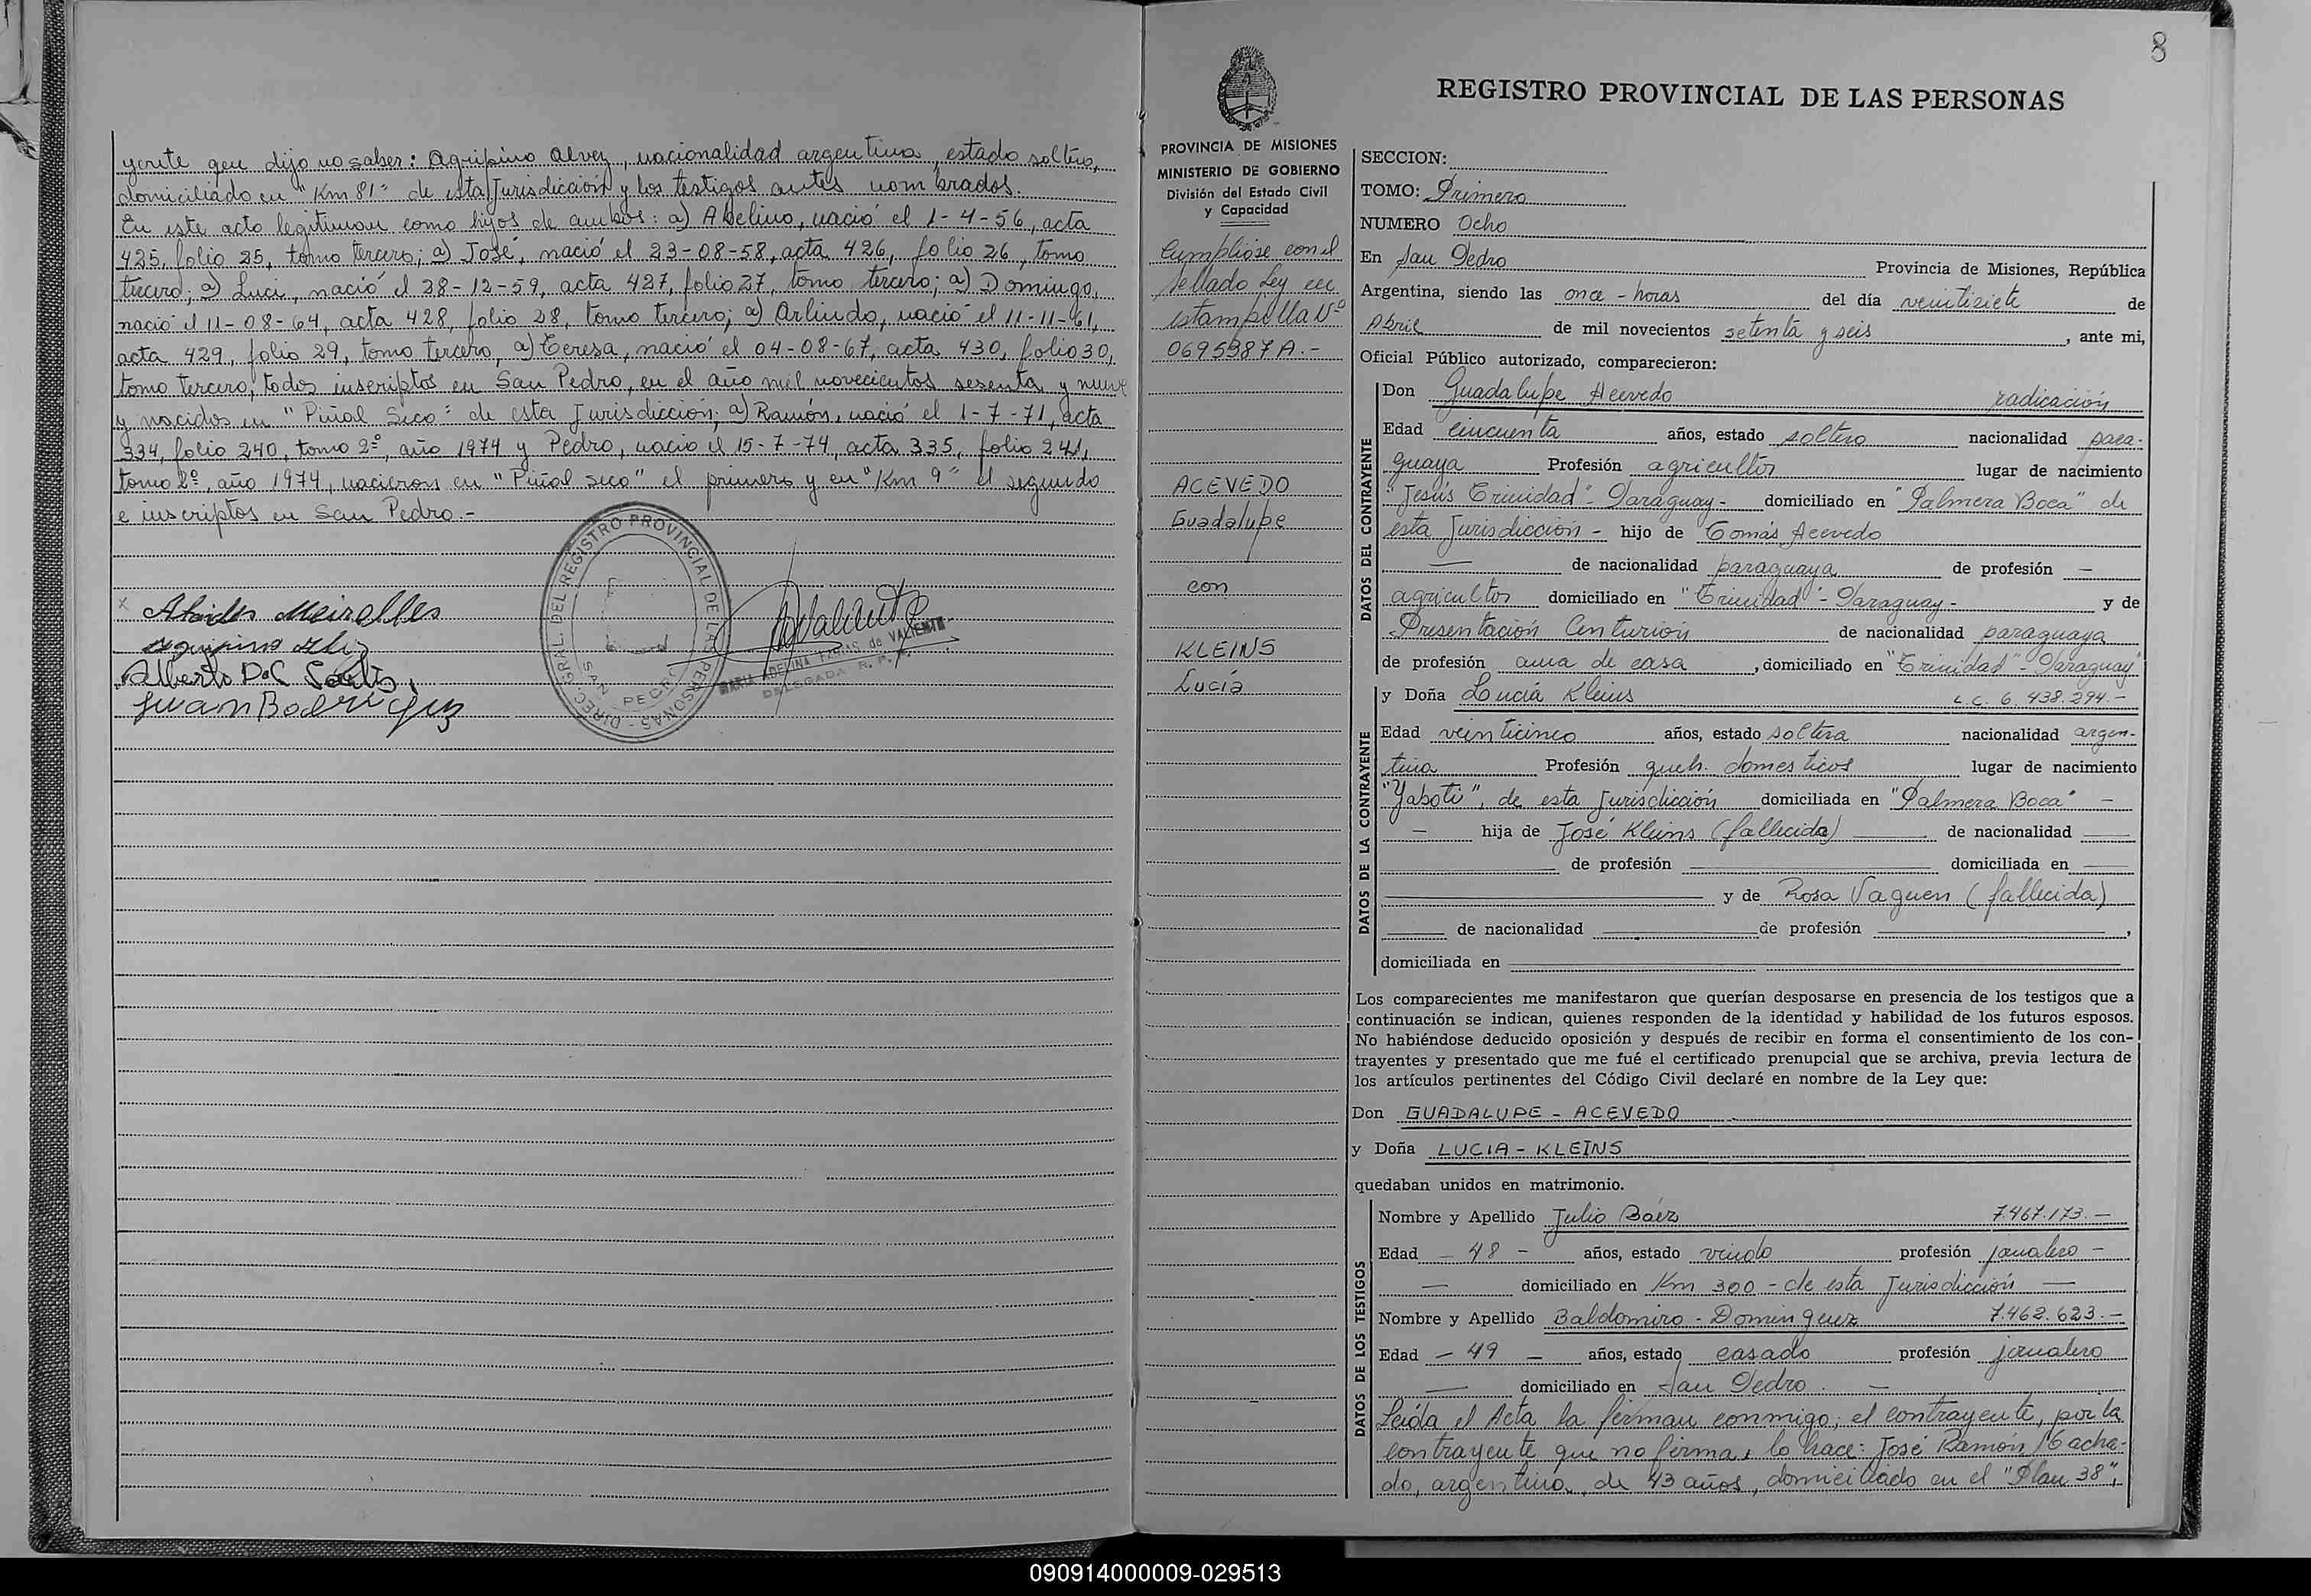 yente que dijo no saber: Agripino Alvez, nacionalidad argentina, estado soltero,
domiciliado en "Km 81" de esta Jurisdicción y los testigos antes nombrados.
En este acto legitiman como hijos de ambos: a) Abelino, nació el 1-4-56, acta
425, folio 25, tomo tercero; a) José, nació el 23-08-58, acta 426, folio 26, tomo
tercero; a) Luci, nació el 28-12-59, acta 427, folio 27, tomo tercero; a) Domingo,
nació el 11-08-64, acta 428, folio 28, tomo tercero; a) Arlindo, nació el 11-11-61,
acta 429, folio 29, tomo tercero, a) Teresa, nació el 04-08-67, acta 430, folio 30,
tomo tercero; todos inscriptos en San Pedro, en el año mil novecientos sesenta y nueve
y nacidos en "Piñal Seco" de esta Jurisdicción; a) Ramón, nació el 1-7-71, acta
334, folio 240, tomo 2º, año 1974 y Pedro, nació el 15-7-74, acta 335, folio 241,
tomo 2º, año 1974, nacieron en "Piñal seco" el primero y en "Km 9" el segundo
e inscriptos en San Pedro.-
x Meirelles
Alberto
Juan
DIREC. GRAL. DEL REGISTRO PROVINCIAL DE LAS PERSONAS
SAN PEDRO
MARIA ADELINA de VALIENTE
DELEGADA R. P. P.
8
REGISTRO PROVINCIAL DE LAS PERSONAS
PROVINCIA DE MISIONES
MINISTERIO DE GOBIERNO
División del Estado Civil
y Capacidad
Cumplióse con el
sellado Ley en
estampilla Nº
0695387A.-
ACEVEDO
Guadalupe
con
KLEINS
Lucía
SECCION:
TOMO: Primero
NUMERO Ocho
En San Pedro Provincia de Misiones, República
Argentina, siendo las once - horas del día veintisiete de
Abril de mil novecientos setenta y seis, ante mi,
Oficial Público autorizado, comparecieron:
DATOS DEL CONTRAYENTE
Don Guadalupe Acevedo radicación
Edad cincuenta años, estado soltero nacionalidad para-
guaya Profesión agricultor lugar de nacimiento
"Jesús Trinidad"- Paraguay- domiciliado en "Palmera Boca" de
esta Jurisdicción - hijo de Tomás Acevedo
— de nacionalidad paraguaya de profesión —
agricultor domiciliado en "Trinidad"- Paraguay- y de
Presentación Centurión de nacionalidad paraguaya
de profesión ama de casa, domiciliado en "Trinidad"- Paraguay"
DATOS DE LA CONTRAYENTE
y Doña Lucía Kleins L.C. 6.438.294.-
Edad veinticinco años, estado soltera nacionalidad argen-
tina Profesión queh. domesticos lugar de nacimiento
"Yabotí", de esta Jurisdicción domiciliada en "Palmera Boca" —
— hija de José Kleins (fallecido) — de nacionalidad —
de profesión — domiciliada en —
— y de Rosa Vaguen (fallecida)
— de nacionalidad — de profesión —,
domiciliada en —
Los comparecientes me manifestaron que querían desposarse en presencia de los testigos que a
continuación se indican, quienes responden de la identidad y habilidad de los futuros esposos.
No habiéndose deducido oposición y después de recibir en forma el consentimiento de los con-
trayentes y presentado que me fué el certificado prenupcial que se archiva, previa lectura de
los artículos pertinentes del Código Civil declaré en nombre de la Ley que:
Don GUADALUPE - ACEVEDO
y Doña LUCIA - KLEINS
quedaban unidos en matrimonio.
DATOS DE LOS TESTIGOS
Nombre y Apellido Julio Báez 7.467.173.—
Edad — 48 — años, estado viudo profesión jornalero —
— domiciliado en Km 300 - de esta Jurisdicción —
Nombre y Apellido Baldomiro - Dominguez 7.462.623.—
Edad — 49 — años, estado casado profesión jornalero
— domiciliado en San Pedro. —
Leída el Acta la firman conmigo, el contrayente, por la
contrayente que no firma, lo hace: José Ramón Macha-
do, argentino, de 43 años, domiciliado en el "Plan 38",
090914000009-029513